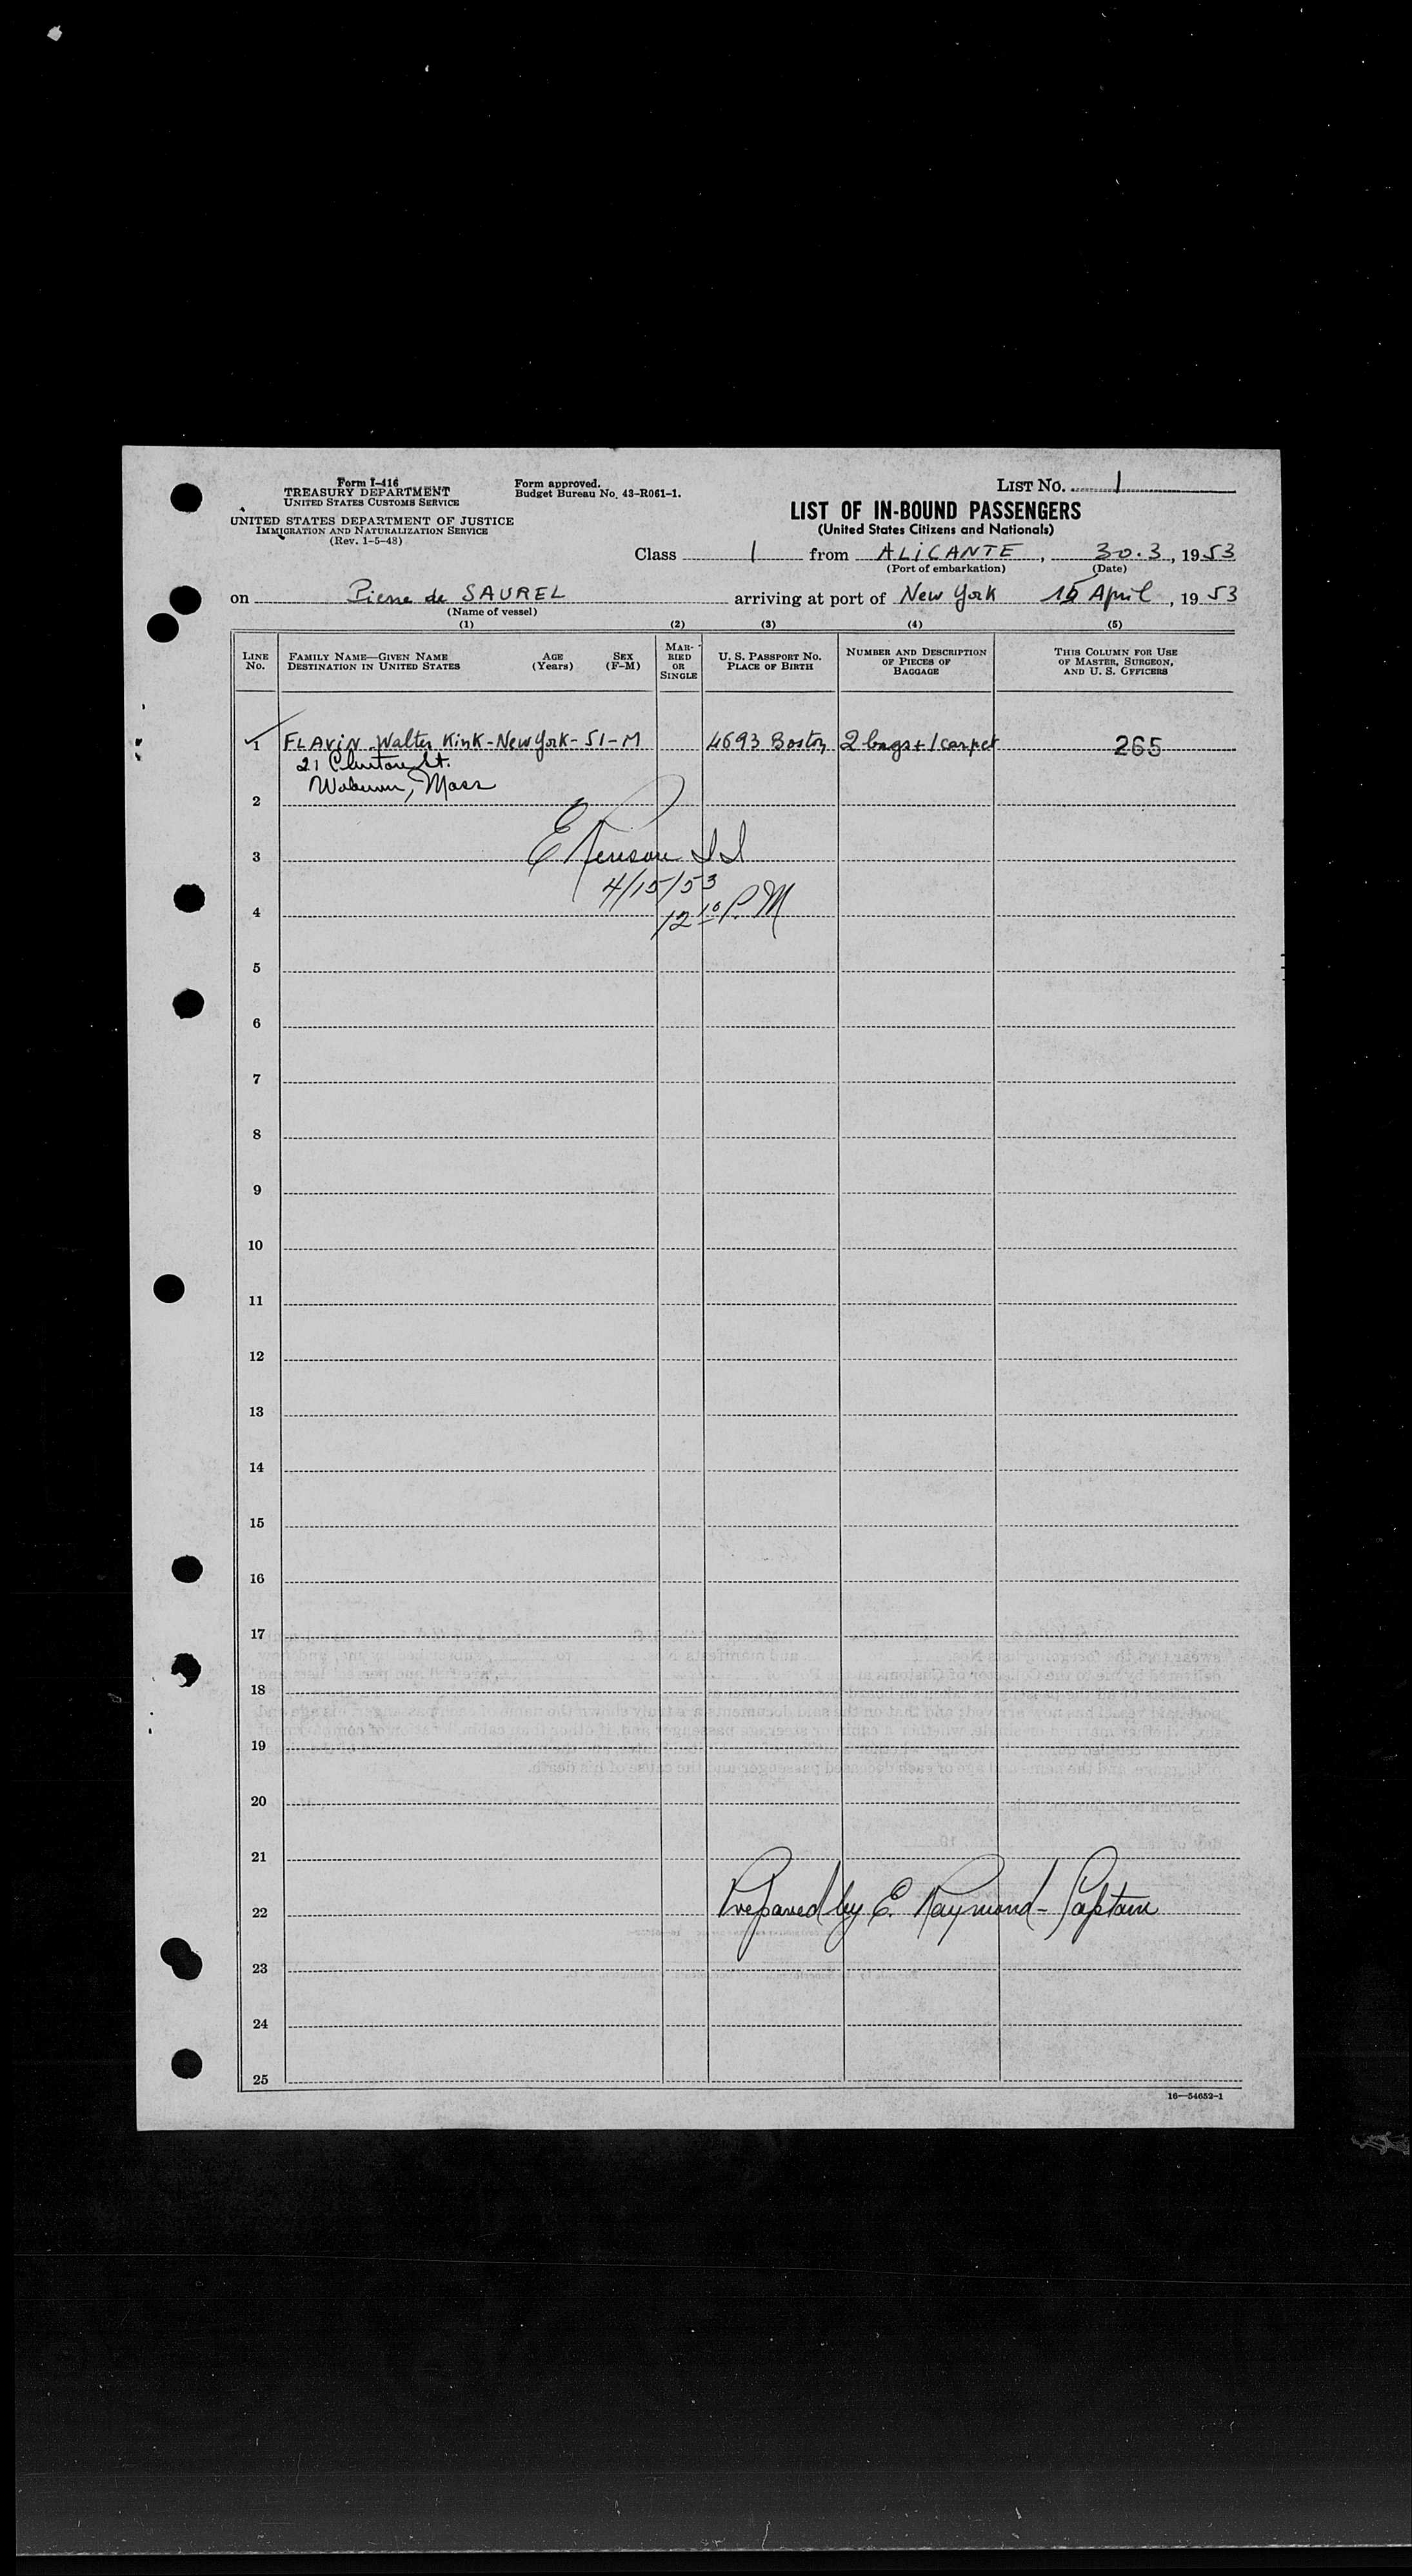 Form I-416
TREASURY DEPARTMENT
UNITED STATES CUSTOMS SERVICE
UNITED STATES DEPARTMENT OF JUSTICE
IMMIGRATION AND NATURALIZATION SERVICE
(Rev. 1-5-48)
Form approved.
Budget Bureau No. 43-R061-1.
LIST NO. 1
LIST OF IN-BOUND PASSENGERS
(United States Citizens and Nationals)
Class 1 from ALiCANTE, 30.3, 1953
(Port of embarkation) (Date)
on Pierre de SAUREL arriving at port of New York 15 April, 1953
(Name of vessel)
(1) (2) (3) (4) (5)
LINE NO.
FAMILY NAME—GIVEN NAME
DESTINATION IN UNITED STATES
AGE (Years)
SEX (F-M)
MARRIED OR SINGLE
U. S. PASSPORT NO.
PLACE OF BIRTH
NUMBER AND DESCRIPTION
OF PIECES OF
BAGGAGE
THIS COLUMN FOR USE
OF MASTER, SURGEON,
AND U. S. OFFICERS
1 FLAViN Walter Kink - New York - 51 - M 4693 Boston 2 bags + 1 carpet 265
21 Clinton St.
Woburn, Mass
2
E
3
4/15/53
12 10 P.M
4
5
6
7
8
9
10
11
12
13
14
15
16
17
18
19
20
21
22 Prepared by E. Raymond - Captain
23
24
25
16—54652-1